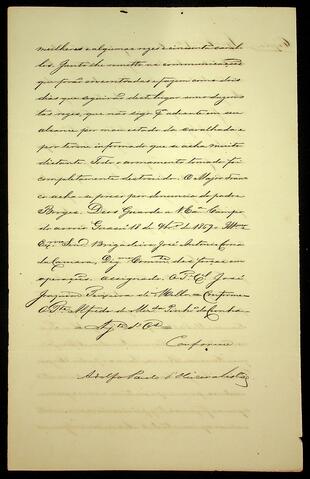 mulheres e algumas rezes e cincoenta cavallos. Junto lhe remetto as communicações
que forão encontradas e fazem como dois
dias que seguirão deste lugar umas duzentas rezes, que não sigo p.ª adiante em seu
alcance por mau estado da cavalhada e
por terem informado que se acha muito
distante. Todo o armamento tomado foi
completamente destruido. O Major Franco acha-se preso por denuncia do padre
Borges. Deos Guarde a V. Ex.ª Campo
do arroio Guassú 18 de
Ex.mo Snr. Brigadeiro José Antonio Corrêa
da Camara, Dig.mo Comm.e das forças em
operações. assignado. O T.e C.el José
Joaquim Teixeira de Mello. Conforme
O T.e Alfredo de
Conforme
Adolfo Paulo d'Oliveira Lisboa